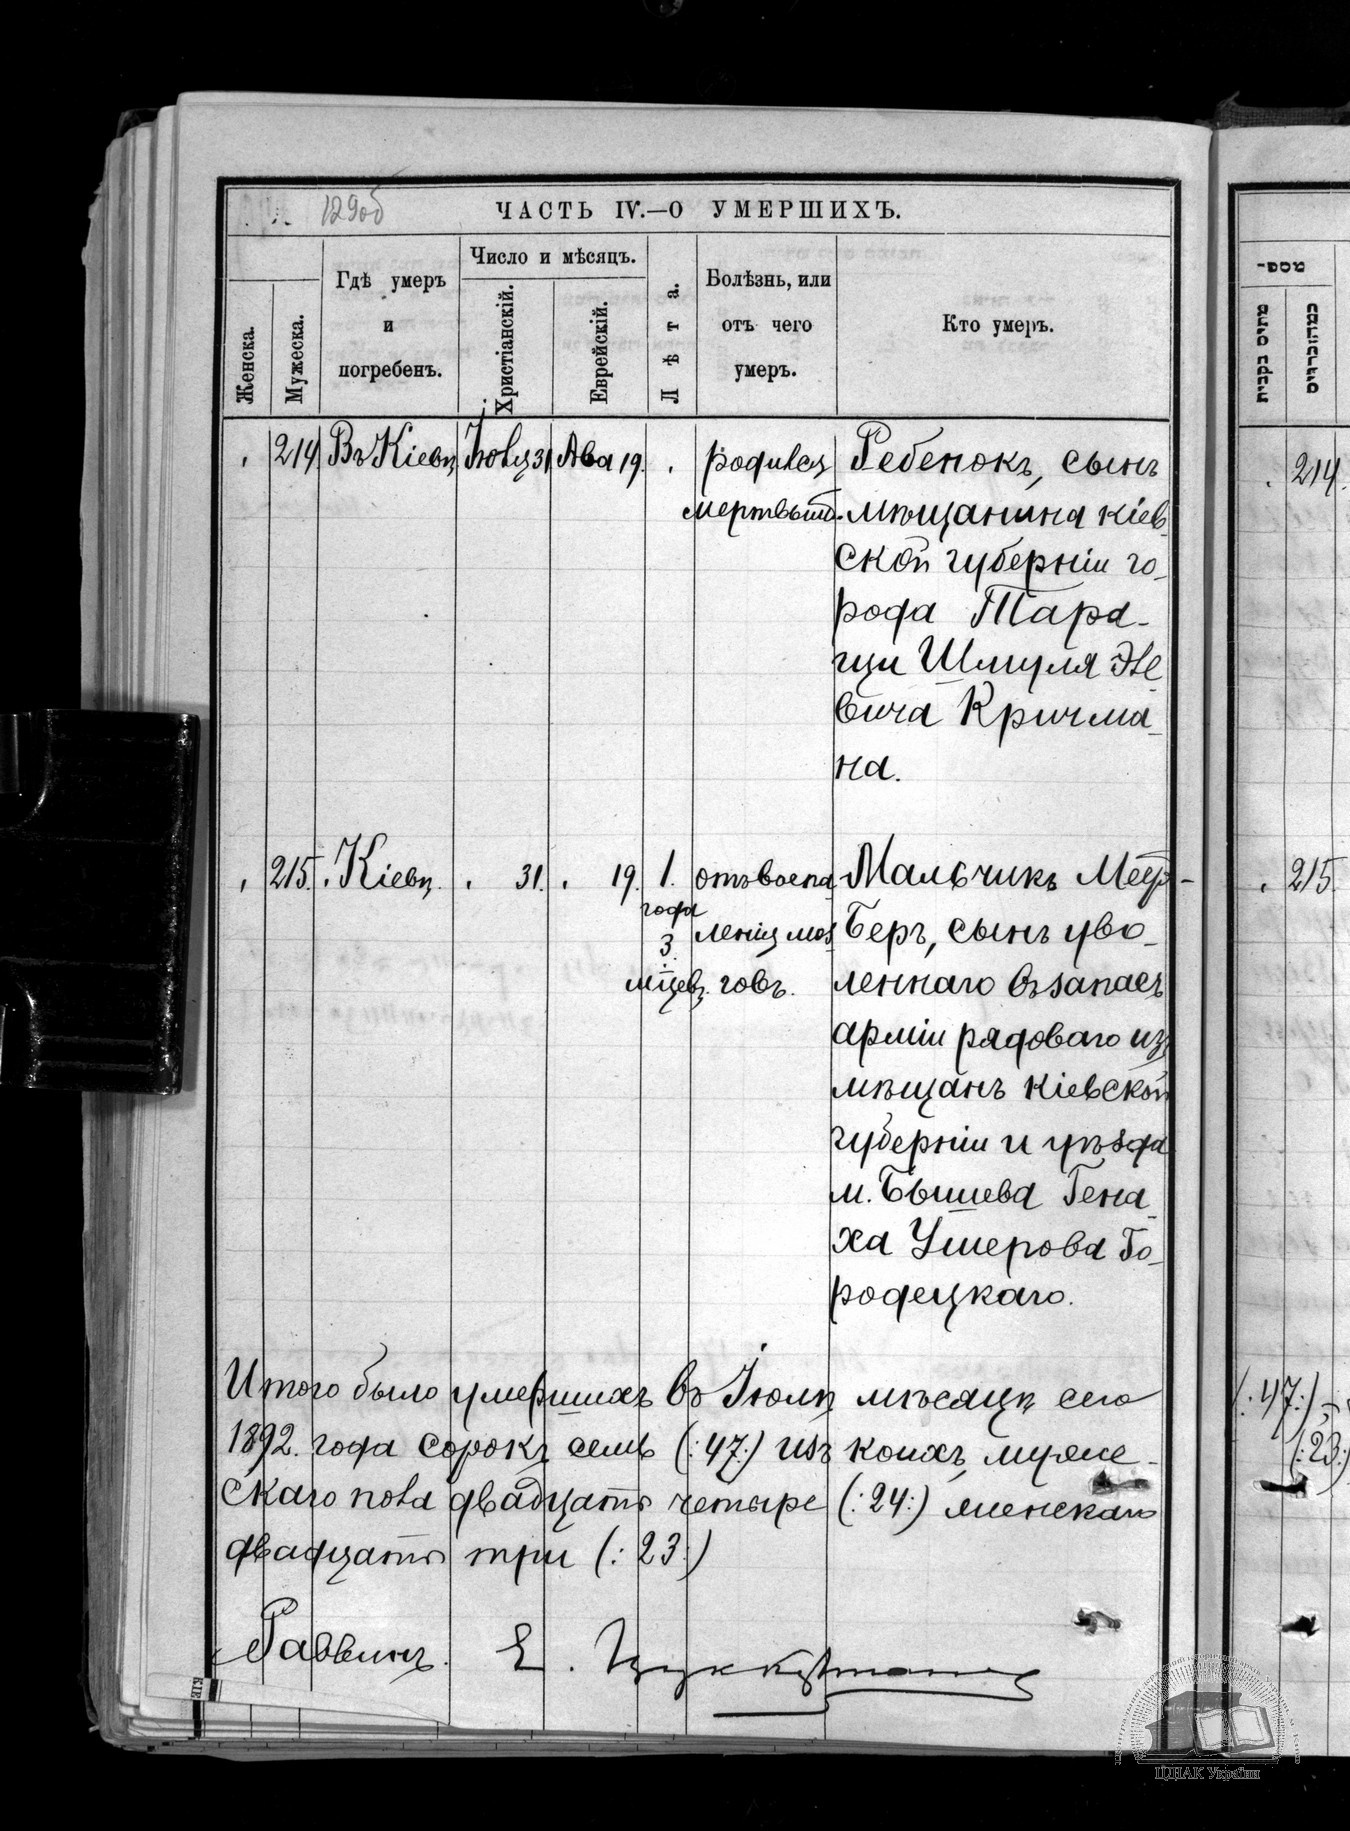 129об
ЧАСТЬ IV.—О УМЕРШИХЪ.
Женска.
Мужеска.
Гдѣ умеръ
и
погребенъ.
Число и мѣсяцъ.
Христіанскій.
Еврейскій.
Лѣта.
Болѣзнь, или
отъ чего
умеръ.
Кто умеръ.
214 Въ Кіевѣ Іюля 31 Ава 19. родился Ребенокъ, сынъ
мертвымъ. мѣщанина Кіев-
ской губерніи го-
рода Тара-
щи Шмуля
вича Кричма-
на.
215. Кіевѣ. 31. 19. 1. отъ воспа- Мальчикъ Меер-
года
3. ленія моз- Беръ, сынъ уво-
мѣсяц. говъ. леннаго въ запасъ
арміи рядоваго изъ
мѣщанъ Кіевской
губерніи и уѣзда
м. Бышева Гена-
ха Ушерова Го-
родецкаго.
Итого было умершихъ въ Іюлѣ мѣсяцѣ сего
1892. года сорокъ семь (:47:) изъ коихъ, муже-
скаго пола двадцать четыре (:24:) женскаго
двадцать три (:23:)
Раввинъ. Е. Цуккерманъ
מספר
מתים נקבות
מתים זכרים
214.
215.
(:47:)
(:23:)
КІЕ
ЦДІАК України